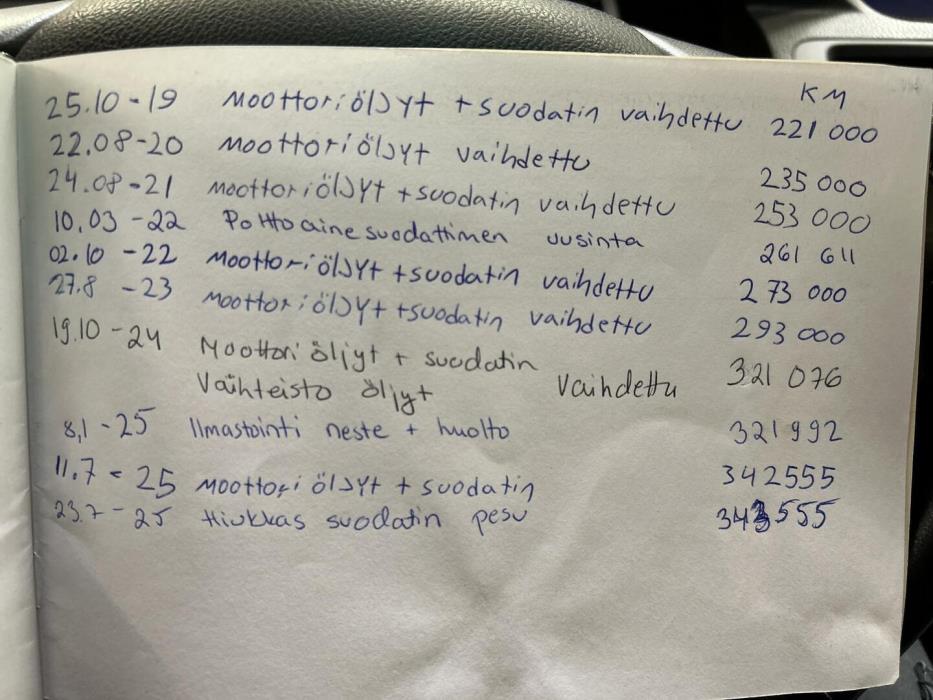 KM
25.10-19 Moottoriöljyt + suodatin vaihdettu 221 000
22.08-20 Moottoriöljyt vaihdettu 235 000
24.08-21 Moottoriöljyt + suodatin vaihdettu 253 000
10.03-22 Polttoainesuodattimen uusinta 261 611
02.10-22 Moottoriöljyt + suodatin vaihdettu 273 000
27.8-23 Moottoriöljyt + suodatin vaihdettu 293 000
19.10-24 Moottori öljyt + suodatin
Vaihteisto öljyt Vaihdettu 321 076
8,1-25 Ilmastointi neste + huolto 321992
11.7-25 Moottori öljyt + suodatin 342555
23.7-25 Hiukkas suodatin pesu 343555